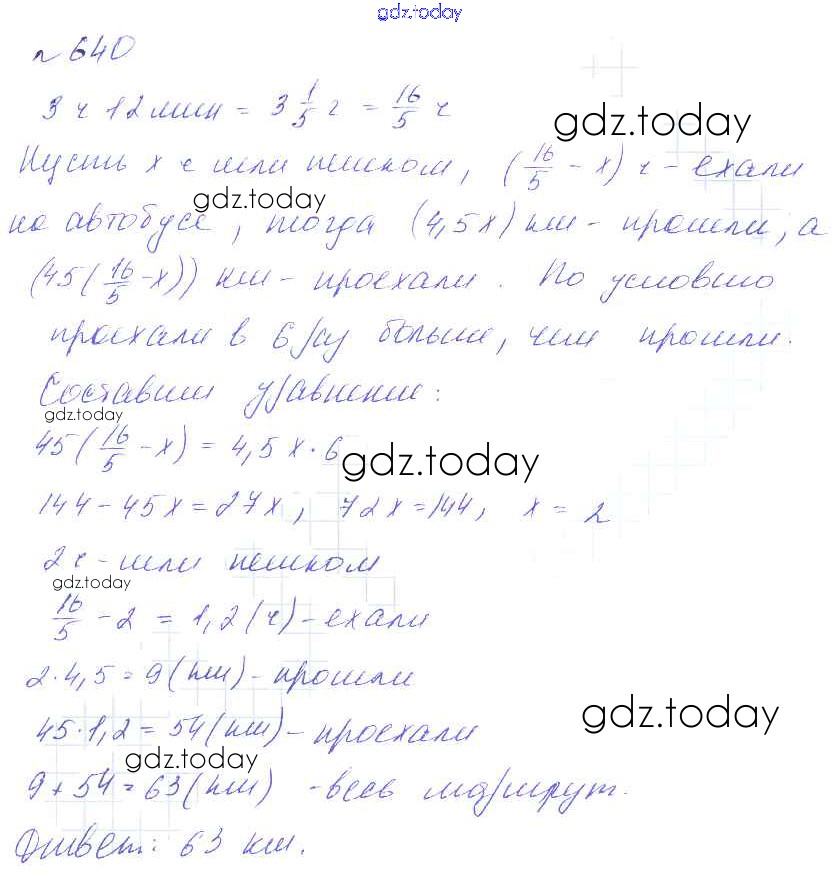 gdz.today
№ 640
3 ч 12 мин = 3 1/5 ч = 16/5 ч
gdz.today
Пусть x ч шли пешком, (16/5 - x) ч - ехали
gdz.today
на автобусе, тогда (4,5x) км - прошли, а
(45(16/5 - x)) км - проехали. По условию
проехали в 6 р/у больше, чем прошли.
Составим уравнение:
gdz.today
45(16/5 - x) = 4,5x · 6
gdz.today
144 - 45x = 27x, 72x = 144, x = 2
2 ч - шли пешком
gdz.today
16/5 - 2 = 1,2 (ч) - ехали
2 · 4,5 = 9 (км) - прошли
45 · 1,2 = 54 (км) - проехали
gdz.today
gdz.today
9 + 54 = 63 (км) - весь маршрут.
Ответ: 63 км.